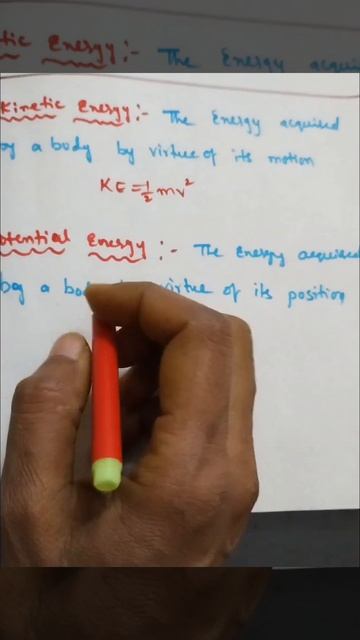 tic Energy :- The Energy acqui
Kinetic Energy :- The Energy acquired
by a body by virtue of its motion
KE = 1/2 mv²
otential Energy :- The Energy acquired
by a bod virtue of its position